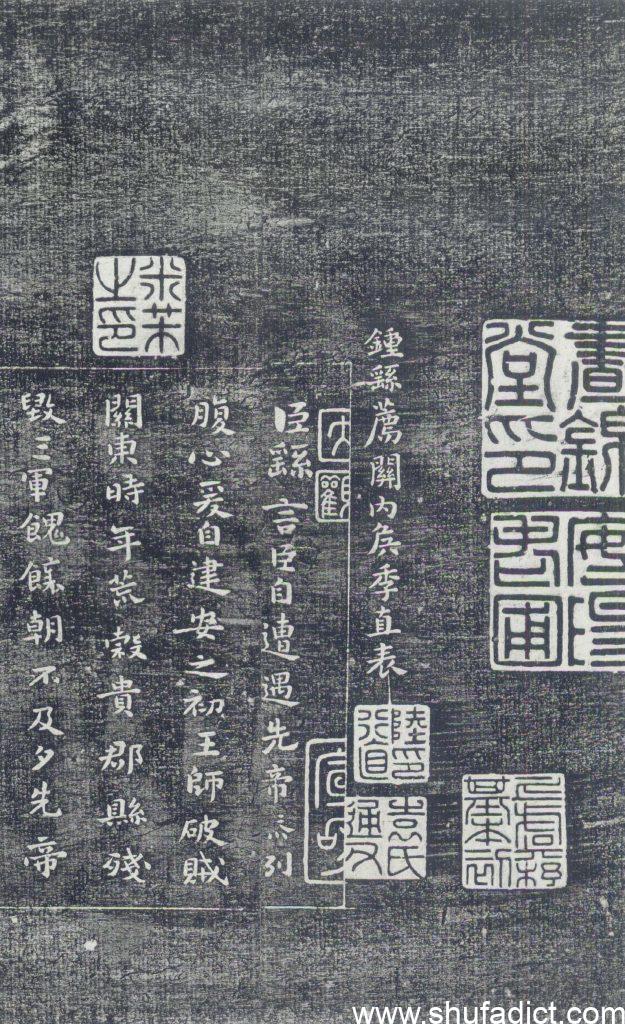 鍾繇薦關内矦季直表
臣繇言臣自遭遇先帝忝列
腹心爰自建安之初王師破賊
關東時年荒榖貴郡縣殘
毀三軍餽饟朝不及夕先帝
米芾之印
陸印行直
袁氏通父
www.shufadict.com